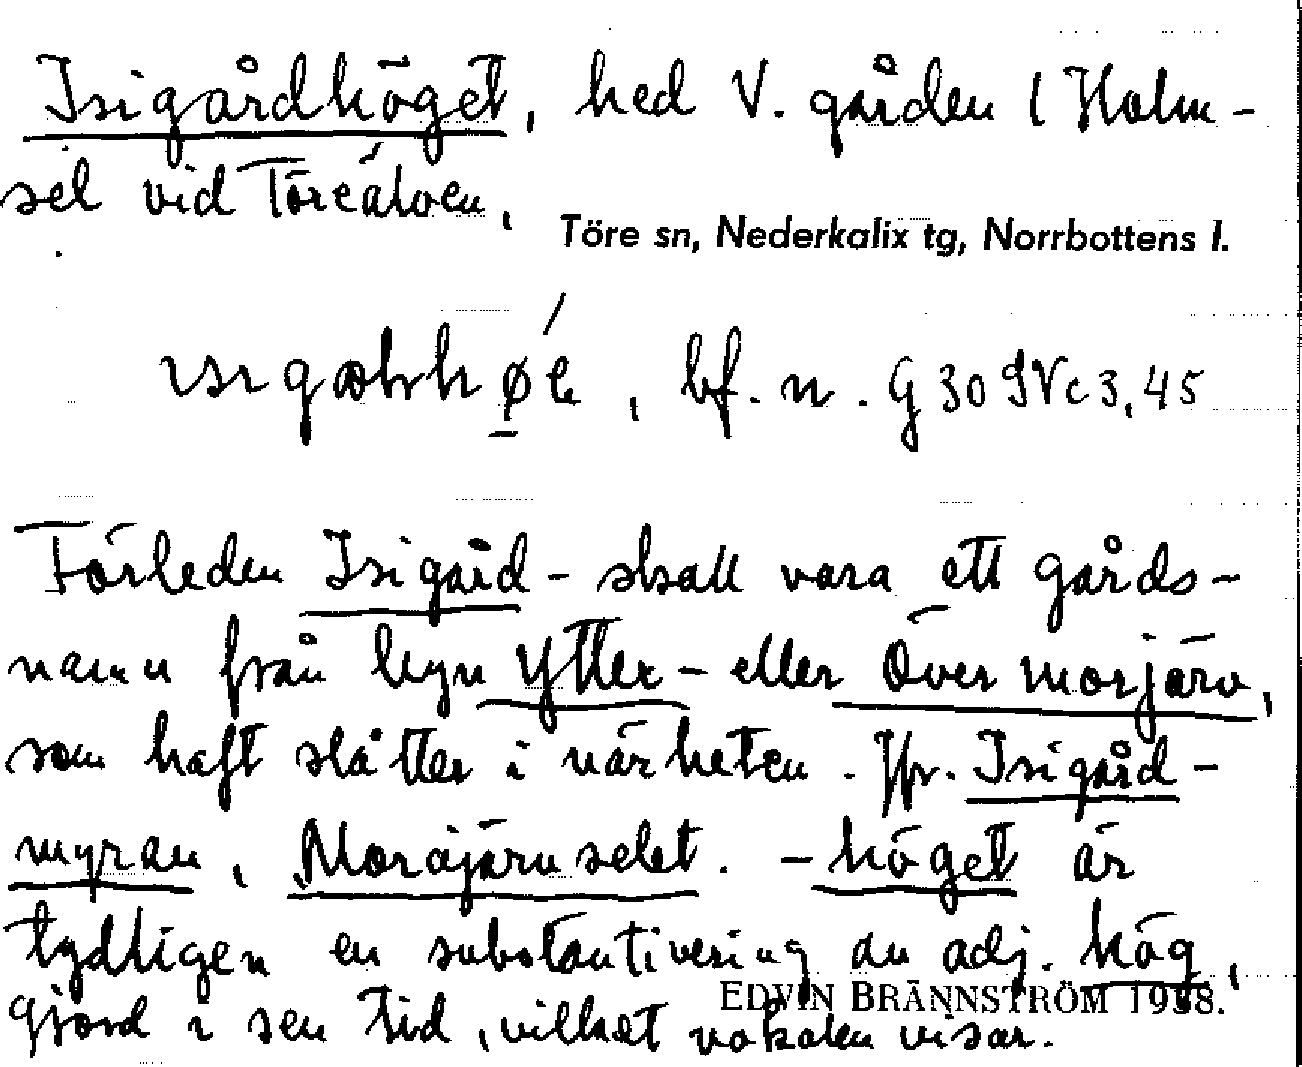 Isigårdhöget, hed V. gården i Holm-
sel vid Töreälven.
Töre sn, Nederkalix tg, Norrbottens l.
bf. n. G 30 IV c 3, 45
Förleden Isigård- skall vara ett gårds-
namn från byn Ytter- eller Övermorjärv,
som haft slåtter i närheten. Jfr. Isigård-
myran, Morajärvselet. -höget är
tydligen en substantivering av adj. hög,
EDVIN BRÄNNSTRÖM 1938.
gjord i sen tid, vilket vokalen visar.